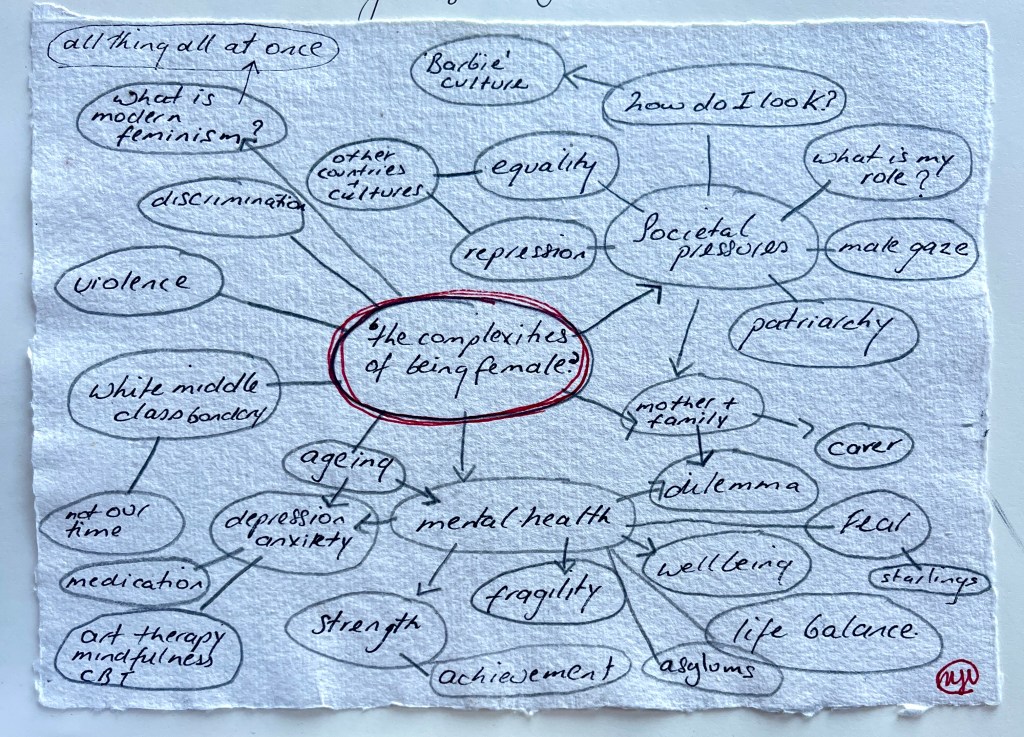 all thing all at once
'Barbie'
culture
how do I look?
what is
modern
feminism?
other
countries
+
cultures
equality
what is my
role?
discrimination
Societal
pressures
repression
male gaze
violence
patriarchy
'the complexities
of being female?
white middle
class bondary
mother +
family
carer
ageing
dilemma
not our
time
depression
anxiety
mental health
fear
medication
wellbeing
starlings
fragility
strength
life balance
art therapy
mindfulness
CBT
achievement
asylums